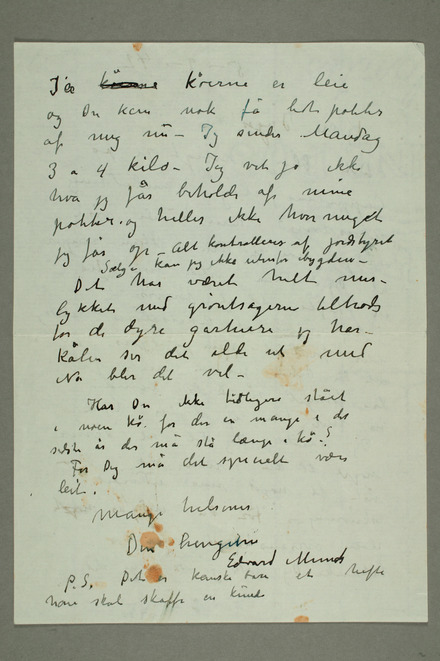 Ja köerne er leie
og Du kan nok få lidt poteter
af mig nu – Jeg sender Mandag
3 a 4 kilo – Jeg vet jo ikke
hva jeg får beholde af mine
poteter og heller ikke hvor meget
jeg får op – Alt kontrolleres af jordstyret
Sælge kan jeg ikke utenfor bygden –
Det har været helt mis-
lykket med grøntsagerne tiltrods
for de dyre gartnere jeg har –
Kålen ser det ilde ut med
Nå blir det vel –
Har Du ikke tidligere stået
i noen kö. for der er mange i det
sidste år der må stå længe i kö?
For Dig må det specielt være
leit.
Mange hilsener
Din hengivne
Edvard Munch
P.S. Det er kanske bare et hefte
som skal skaffe en kunde